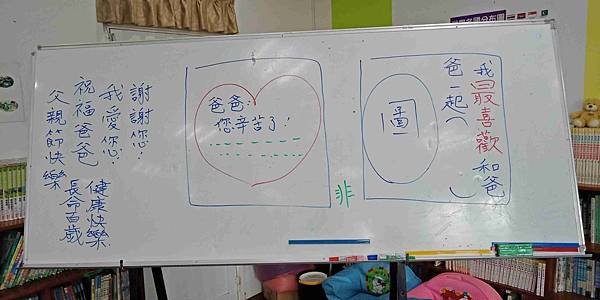 我最喜歡和爸
爸一起( )
圖
爸爸:
您辛苦了!
非
謝謝您!
我愛您!
祝福爸爸
父親節快樂
健康快樂
長命百歲